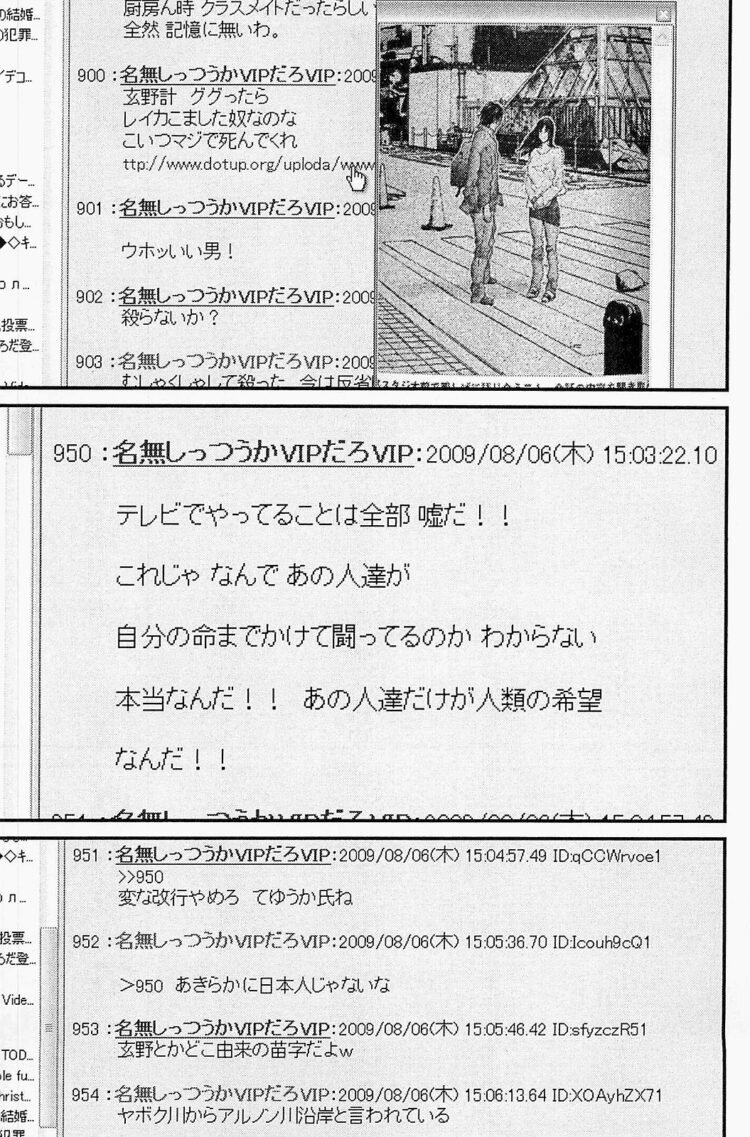 の結婚…
の犯罪…
厨房ん時 クラスメイトだったらしい
全然 記憶に無いわ。
900 :名無しっつうかVIPだろVIP:2009
玄野計 ググったら
レイカこました奴なのな
こいつマジで死んでくれ
ttp://www.dotup.org/uploda/www
901 :名無しっつうかVIPだろVIP:2009
ウホッいい男！
902 :名無しっつうかVIPだろVIP:2009
殺らないか？
903 :名無しっつうかVIPだろVIP:2009
むしゃくしゃして殺った 今は反省
るデー…
にお答…
おもし…
◆◇キ…
投票…
ろだ登…
950 :名無しっつうかVIPだろVIP:2009/08/06(木) 15:03:22.10
テレビでやってることは全部 嘘だ！！
これじゃ なんで あの人達が
自分の命までかけて闘ってるのか わからない
本当なんだ！！ あの人達だけが人類の希望
なんだ！！
951 :名無しっつうかVIPだろVIP:2009/08/06(木) 15:04:57.49 ID:qCCWrvoe1
>>950
変な改行やめろ てゆうか氏ね
952 :名無しっつうかVIPだろVIP:2009/08/06(木) 15:05:36.70 ID:Icouh9cQ1
＞950 あきらかに日本人じゃないな
953 :名無しっつうかVIPだろVIP:2009/08/06(木) 15:05:46.42 ID:sfyzczR51
玄野とかどこ由来の苗字だよw
954 :名無しっつうかVIPだろVIP:2009/08/06(木) 15:06:13.64 ID:XOAyhZX71
ヤボク川からアルノン川沿岸と言われている
◇キ…
投票…
ろだ登…
Vide…
TOD…
ole fu…
hrist…
結婚…